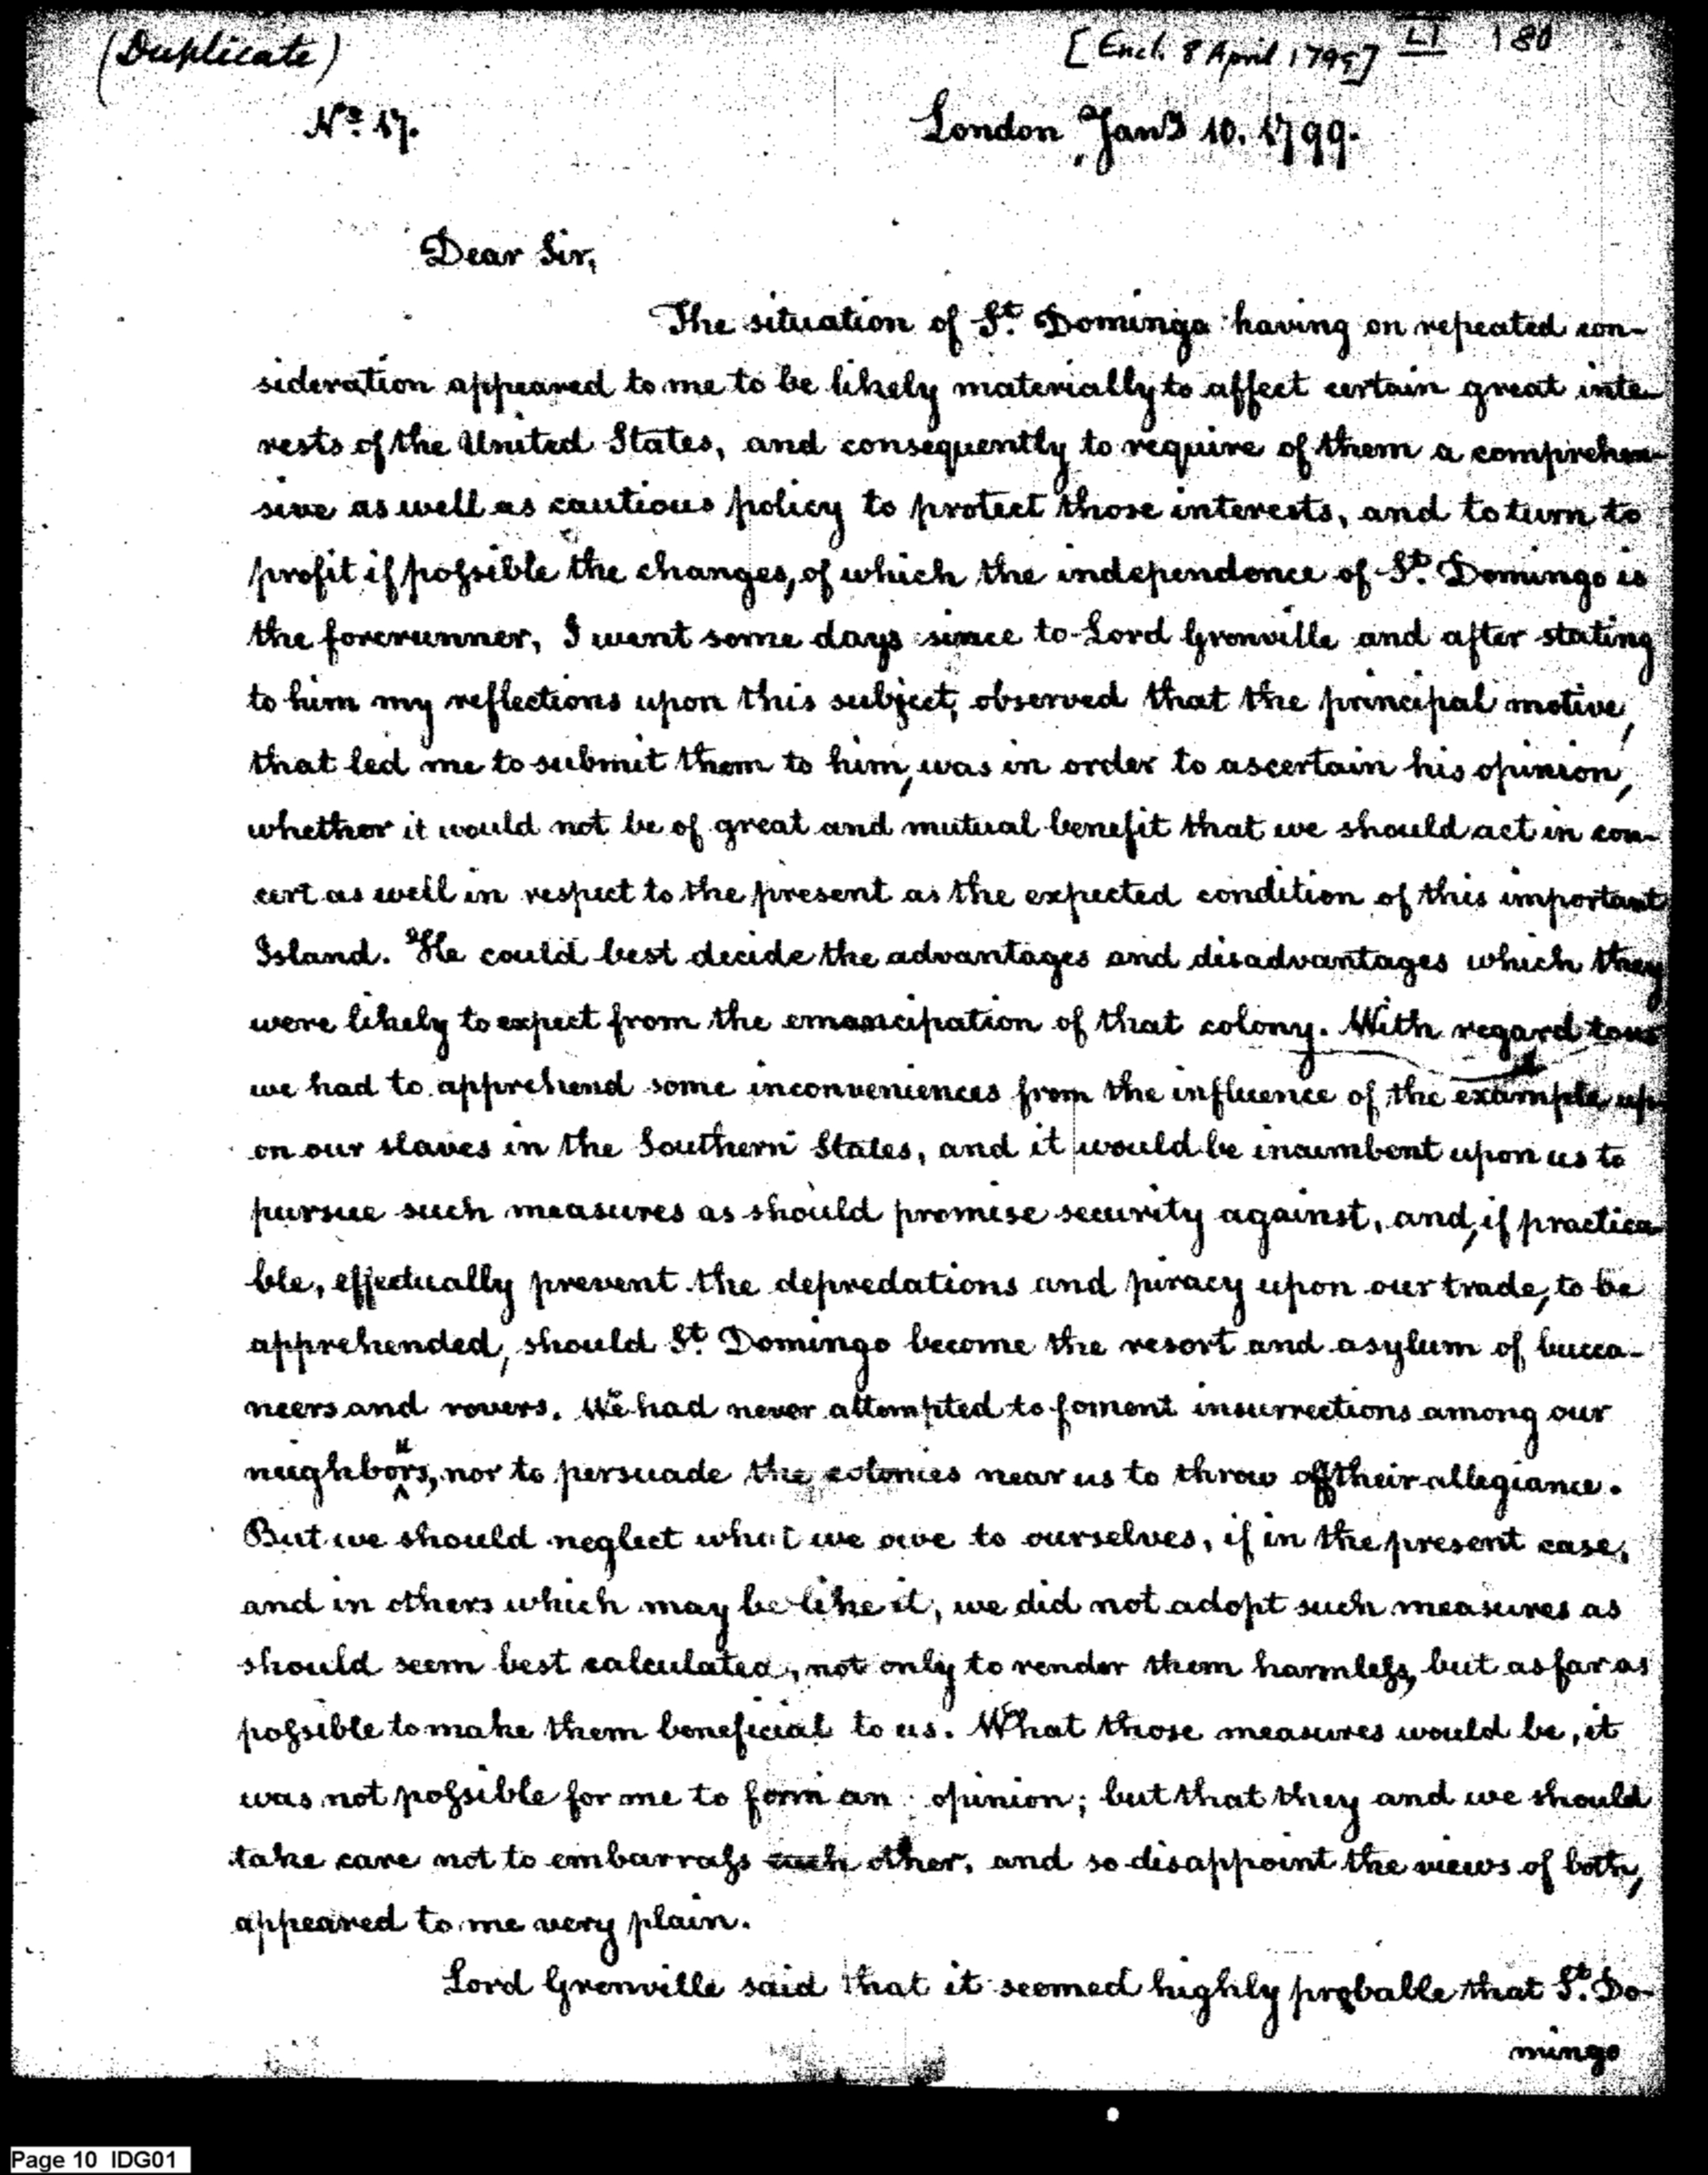 (Duplicate)
[Encl. 8 April 1799] LI 180
No. 17.
London Jany 10. 1799.
Dear Sir,
The situation of St. Domingo having on repeated con-
sideration appeared to me to be likely materially to affect certain great inte-
rests of the United States, and consequently to require of them a comprehen-
sive as well as cautious policy to protect those interests, and to turn to
profit if possible the changes, of which the independence of St. Domingo is
the forerunner, I went some days since to Lord Grenville and after stating
to him my reflections upon this subject, observed that the principal motive,
that led me to submit them to him, was in order to ascertain his opinion,
whether it would not be of great and mutual benefit that we should act in con-
cert as well in respect to the present as the expected condition of this important
Island. He could best decide the advantages and disadvantages which they
were likely to expect from the emancipation of that colony. With regard to us
we had to apprehend some inconveniences from the influence of the example up-
on our slaves in the Southern States, and it would be incumbent upon us to
pursue such measures as should promise security against, and, if practica-
ble, effectually prevent the depredations and piracy upon our trade, to be
apprehended, should St. Domingo become the resort and asylum of bucca-
neers and rovers. We had never attempted to foment insurrections among our
neighbours, nor to persuade the colonies near us to throw off their allegiance.
But we should neglect what we owe to ourselves, if in the present case,
and in others which may be like it, we did not adopt such measures as
should seem best calculated, not only to render them harmless, but as far as
possible to make them beneficial to us. What those measures would be, it
was not possible for me to form an opinion; but that they and we should
take care not to embarrass each other, and so disappoint the views of both,
appeared to me very plain.
Lord Grenville said that it seemed highly probable that St. Do-
mingo
Page 10 IDG01